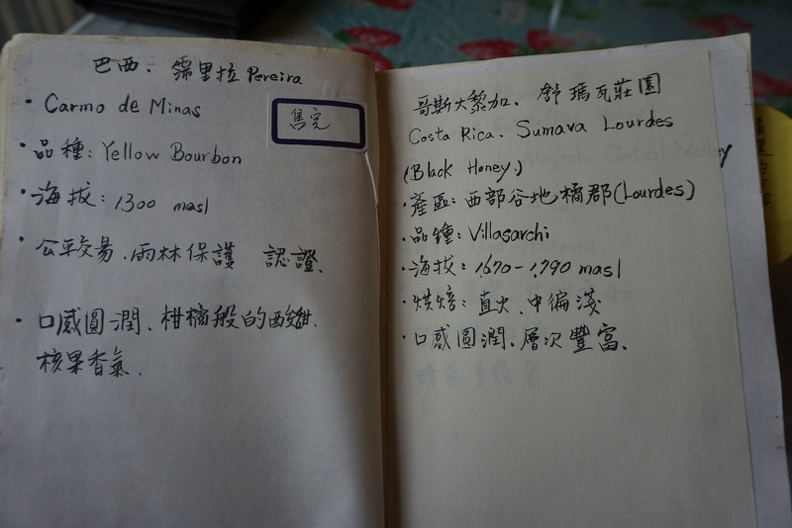 巴西、霈里拉 Pereira
• Carmo de Minas
售完
• 品種: Yellow Bourbon
• 海拔: 1300 masl
• 公平交易、雨林保護 認證、
• 口感圓潤、柑橘般的酸甜、
核果香氣.
哥斯大黎加、舒瑪瓦莊園
Costa Rica. Sumava Lourdes
(Black Honey.)
• 產區: 西部谷地 橘郡(Lourdes)
• 品種: Villasarchi
• 海拔: 1670-1790 masl
• 烘焙: 直火、中偏淺
• 口感圓潤、層次豐富、